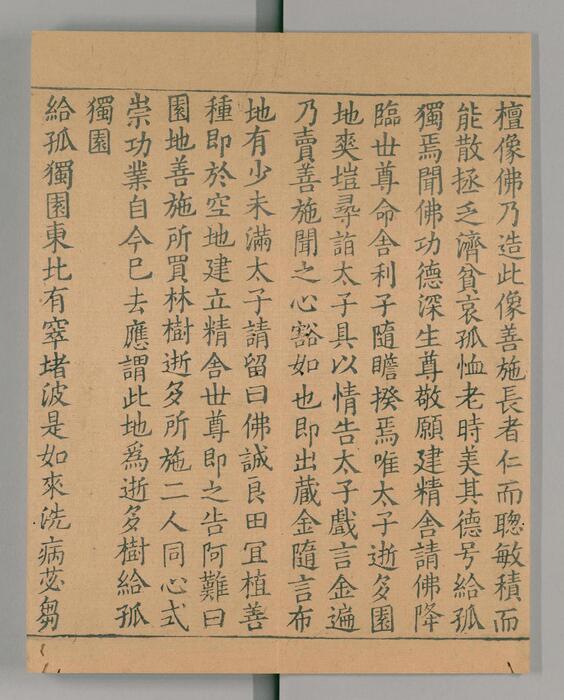 檀像佛乃造此像善施長者仁而聰敏積而
能散拯乏濟貧哀孤恤老時美其德号給孤
獨焉聞佛功德深生尊敬願建精舍請佛降
臨世尊命舍利子隨瞻揆焉唯太子逝多園
地爽塏尋詣太子具以情告太子戲言金遍
乃賣善施聞之心豁如也即出藏金隨言布
地有少未滿太子請留曰佛誠良田冝植善
種即於空地建立精舍世尊即之告阿難曰
園地善施所買林樹逝多所施二人同心式
崇功業自今已去應謂此地爲逝多樹給孤
獨園
給孤獨園東北有窣堵波是如來洗病苾芻